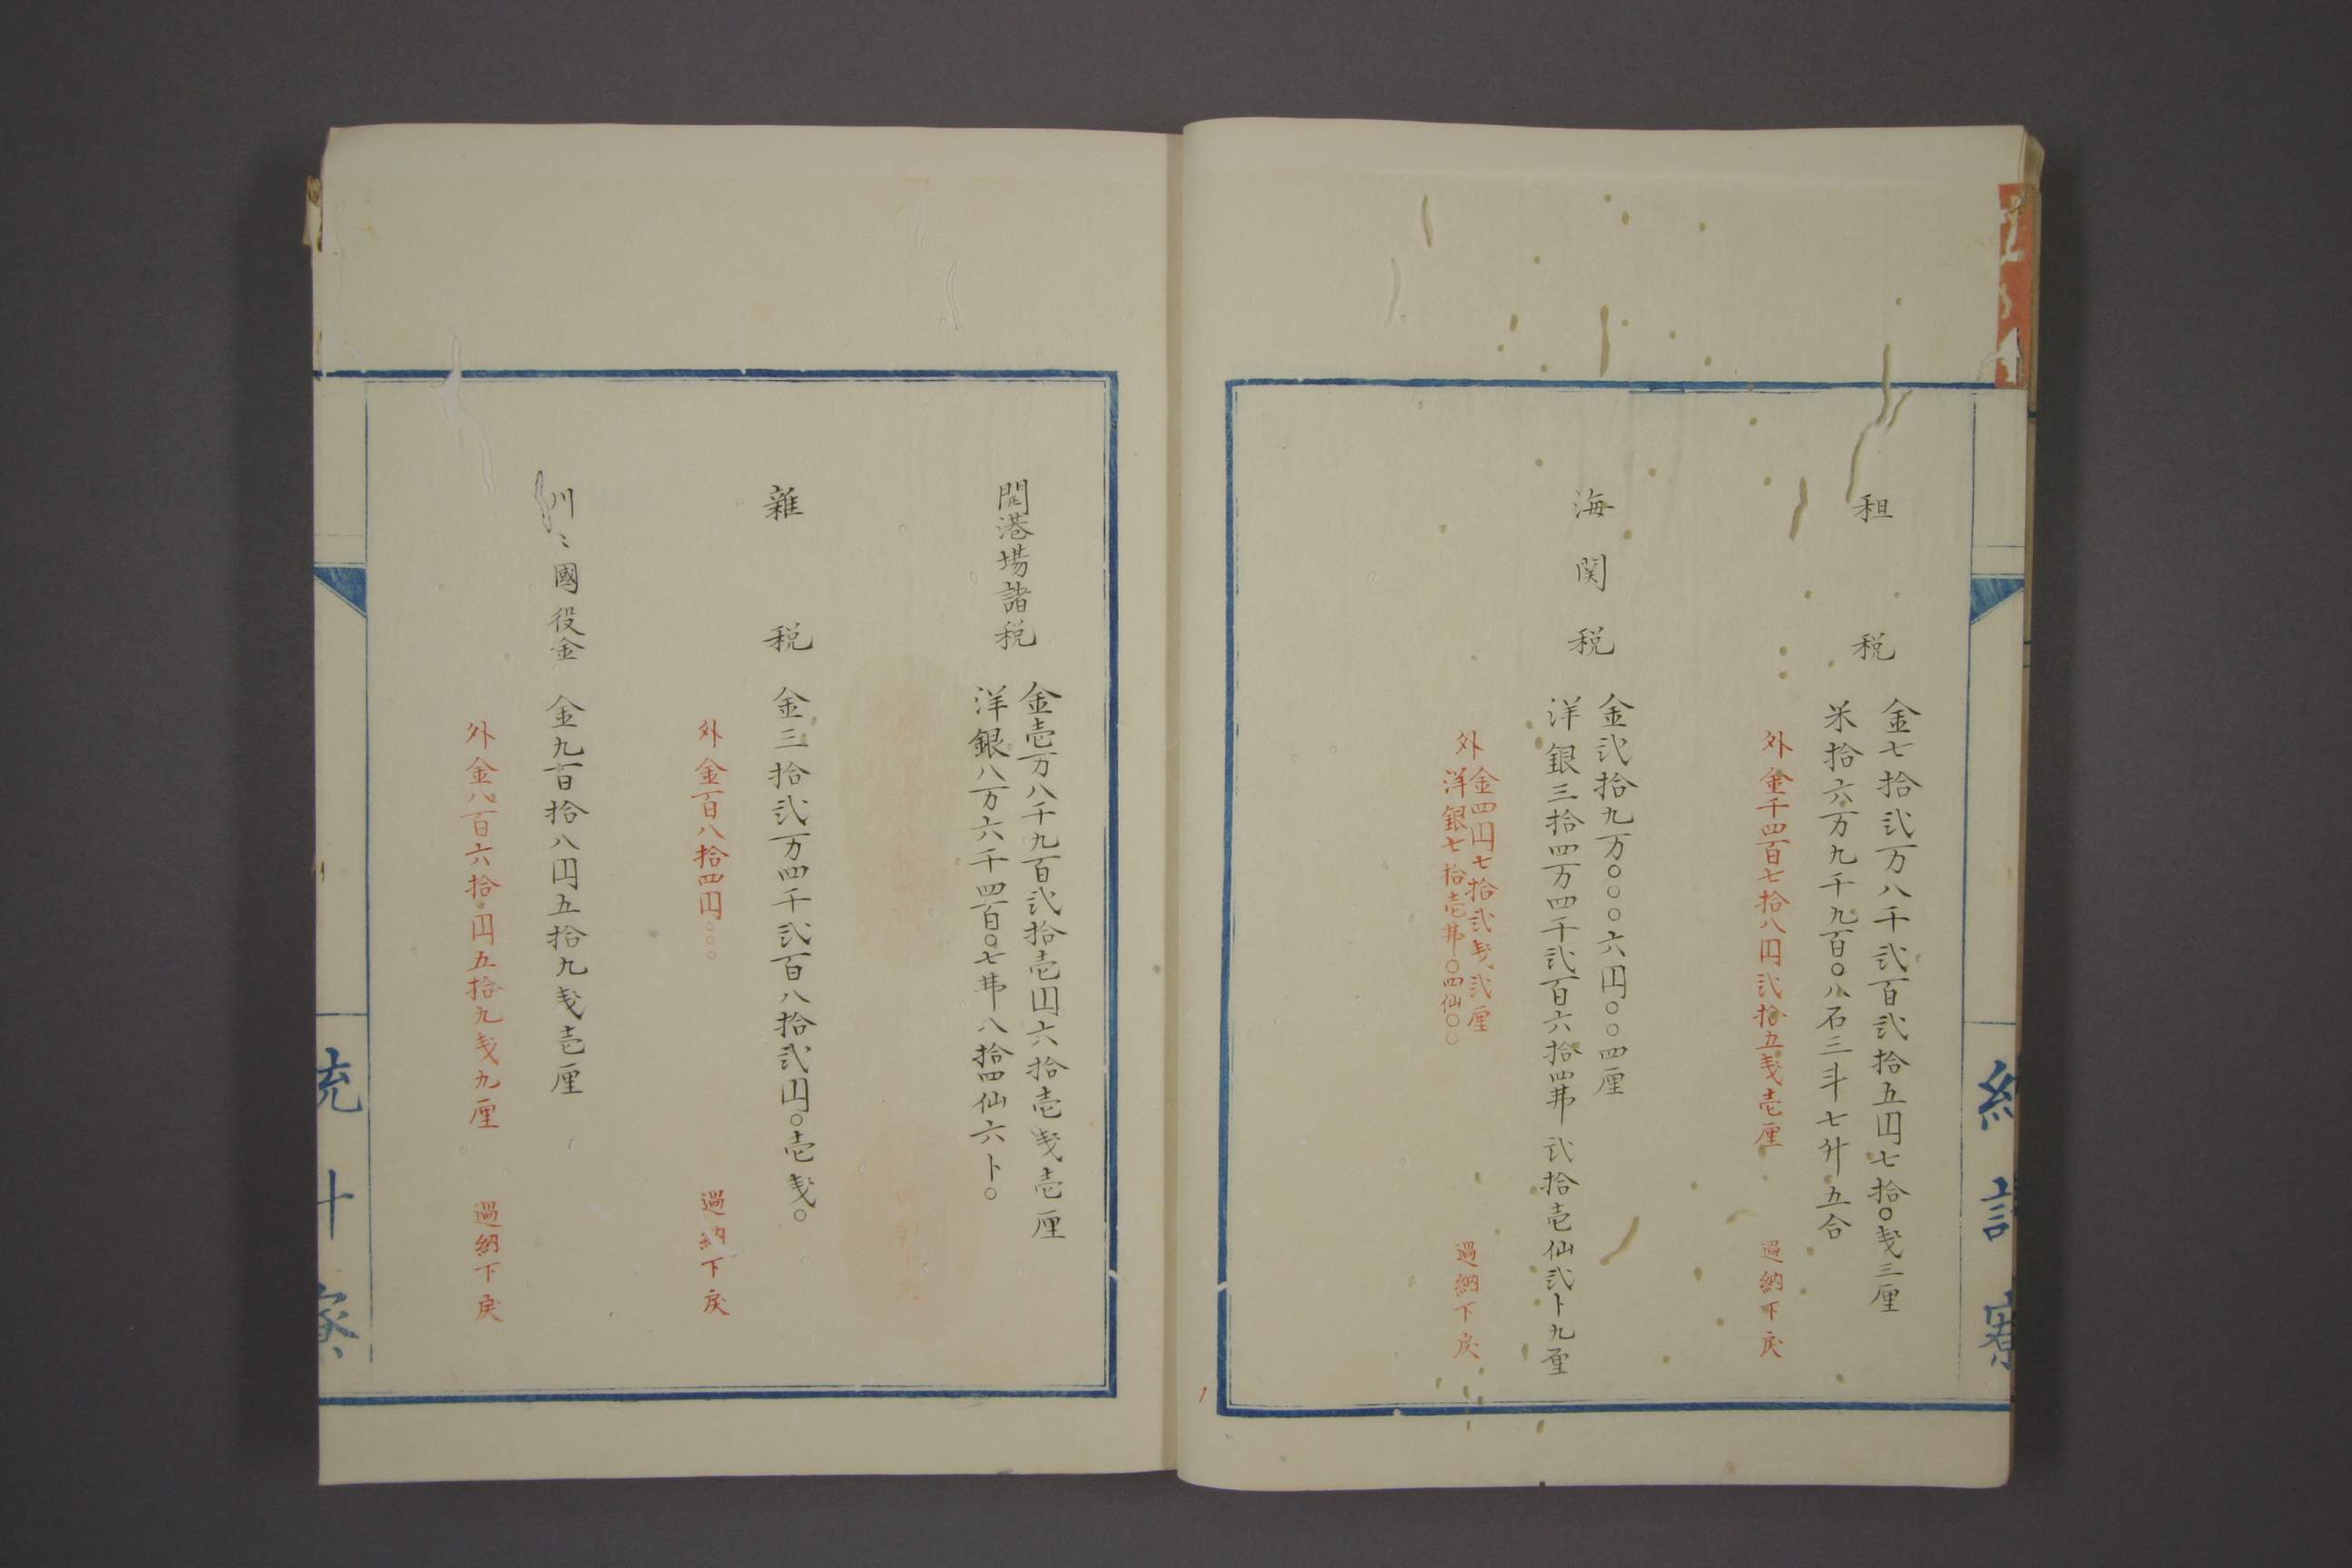 租税
金七拾弐万八千弐百弐拾五円七拾〇戔三厘
米拾六万九千九百〇八石三斗七升五合
外金千四百七拾八円弐拾五戔壱厘 過納下戻
海関税
金弐拾九万〇〇〇六円〇〇四厘
洋銀三拾四万四千弐百六拾四弗弐拾壱仙弐卜九厘
外
金四円七拾弐戔弐厘
洋銀七拾壱弗〇四仙〇〇
過納下戻
統計寮
開港場諸税
金壱万八千九百弐拾壱円六拾壱戔壱厘
洋銀八万六千四百〇七弗八拾四仙六卜〇
雑税
金三拾弐万四千弐百八拾弐円〇壱戔〇
外金百八拾四円〇〇〇 過納下戻
川〻國役金
金九百拾八円五拾九戔壱厘
外金八百六拾〇円五拾九戔九厘 過納下戻
統計寮